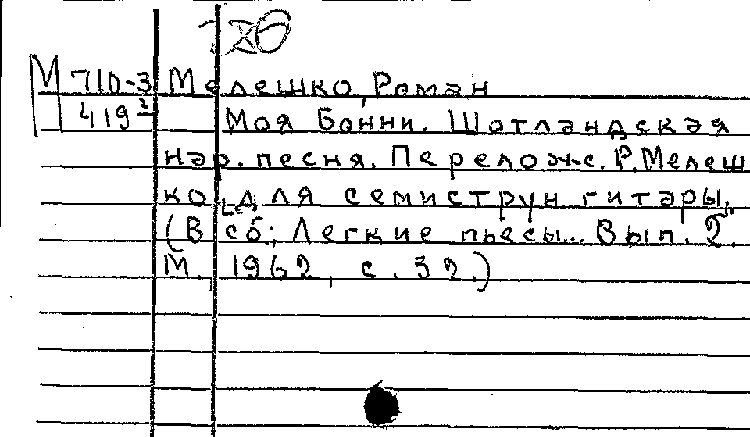 М 710-3 Мелешко, Роман
419² Моя Бонни. Шотландская
нар. песня. Переложе. Р. Мелеш
ко для семиструн гитары.
(В сб.: Легкие пьесы... Вып. 2.
М. 1962, с. 32.)